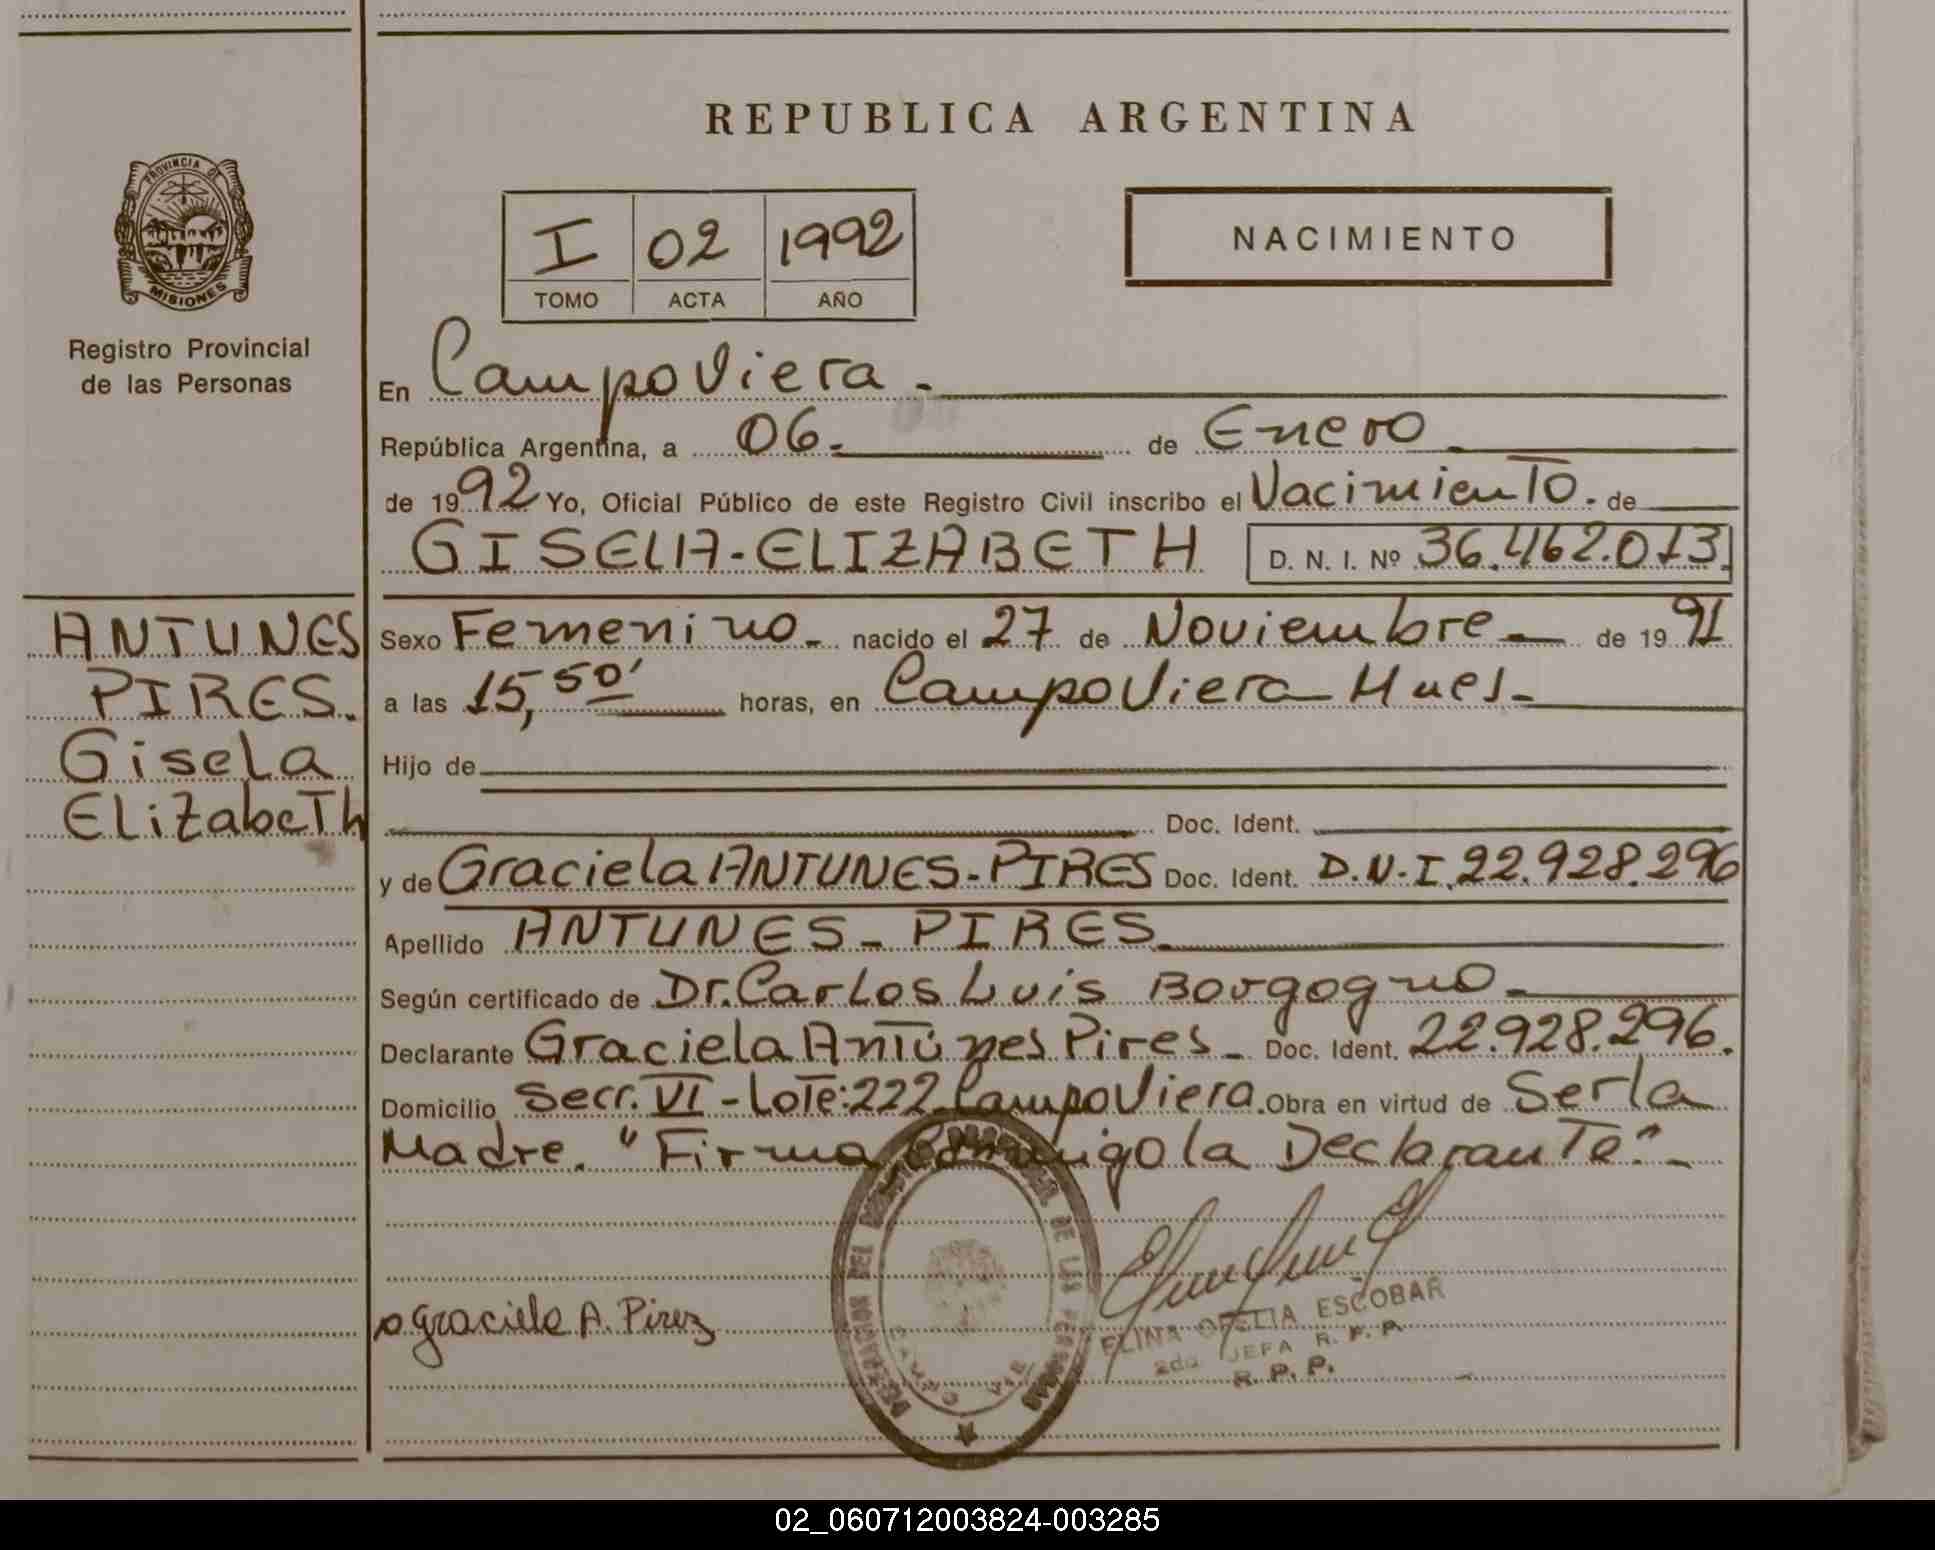 REPUBLICA ARGENTINA
PROVINCIA DE
MISIONES
Registro Provincial
de las Personas
I 02 1992
TOMO ACTA AÑO
NACIMIENTO
En Campo Viera.
República Argentina, a 06. de Enero
de 1992 Yo, Oficial Público de este Registro Civil inscribo el Nacimiento. de
GISELA-ELIZABETH D. N. I. Nº 36.462.013.
ANTUNES
PIRES.
Gisela
Elizabeth
Sexo Femenino nacido el 27 de Noviembre de 1991
a las 15,50' horas, en Campo Viera
Hijo de
Doc. Ident.
y de Graciela ANTUNES-PIRES Doc. Ident. D.N.I. 22.928.296
Apellido ANTUNES-PIRES
Según certificado de Dr. Carlos Luis Borgogno
Declarante Graciela Antúnes Pires Doc. Ident. 22.928.296.
Domicilio Secc. VI-Lote: 222 Campo Viera. Obra en virtud de Ser la
Madre. "Firma Conmigo la Declarante"
Graciela A. Pirez
ELINA OFELIA ESCOBAR
2da JEFA R. P. P.
R. P. P.
02_060712003824-003285